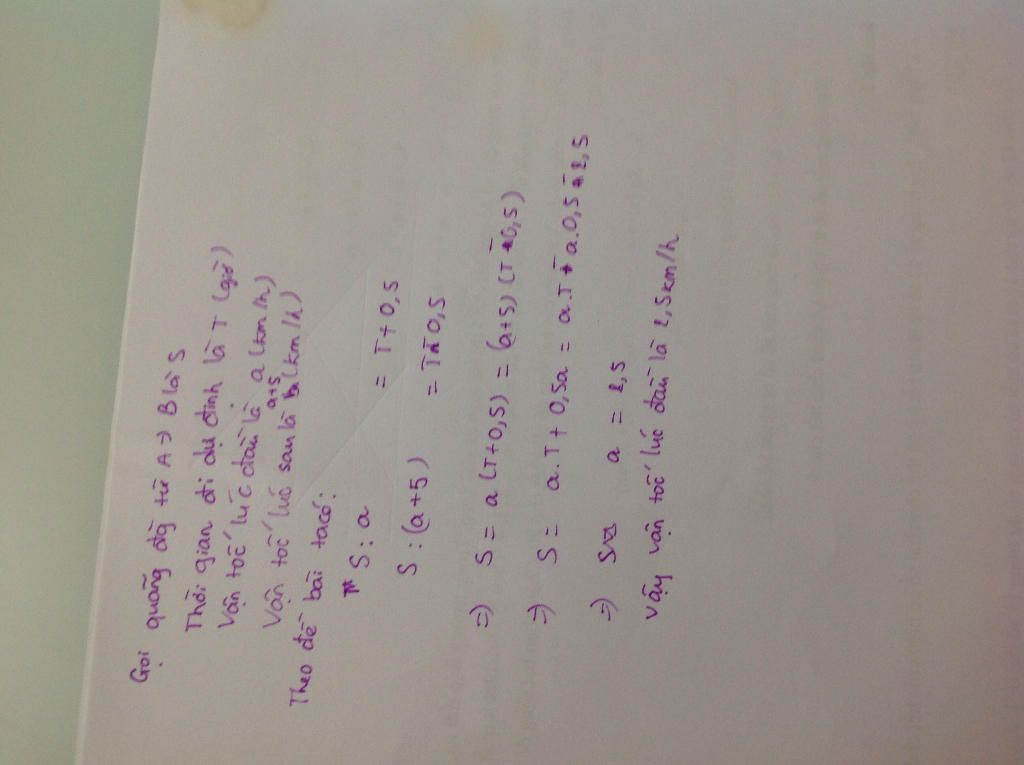 Gọi quãng đg từ A → B là S
Thời gian đi dự định là T (giờ)
Vận tốc lúc đầu là a (km/h)
Vận tốc lúc sau là a+5 (km/h)
Theo đề bài ta có:
S : a = T + 0,5
S : (a+5) = T - 0,5
=) S = a (T+0,5) = (a+5) (T - 0,5)
=) S = a.T + 0,5a = a.T - a.0,5 - 2,5
=) a = 2,5
Vậy vận tốc lúc đầu là 2,5km/h